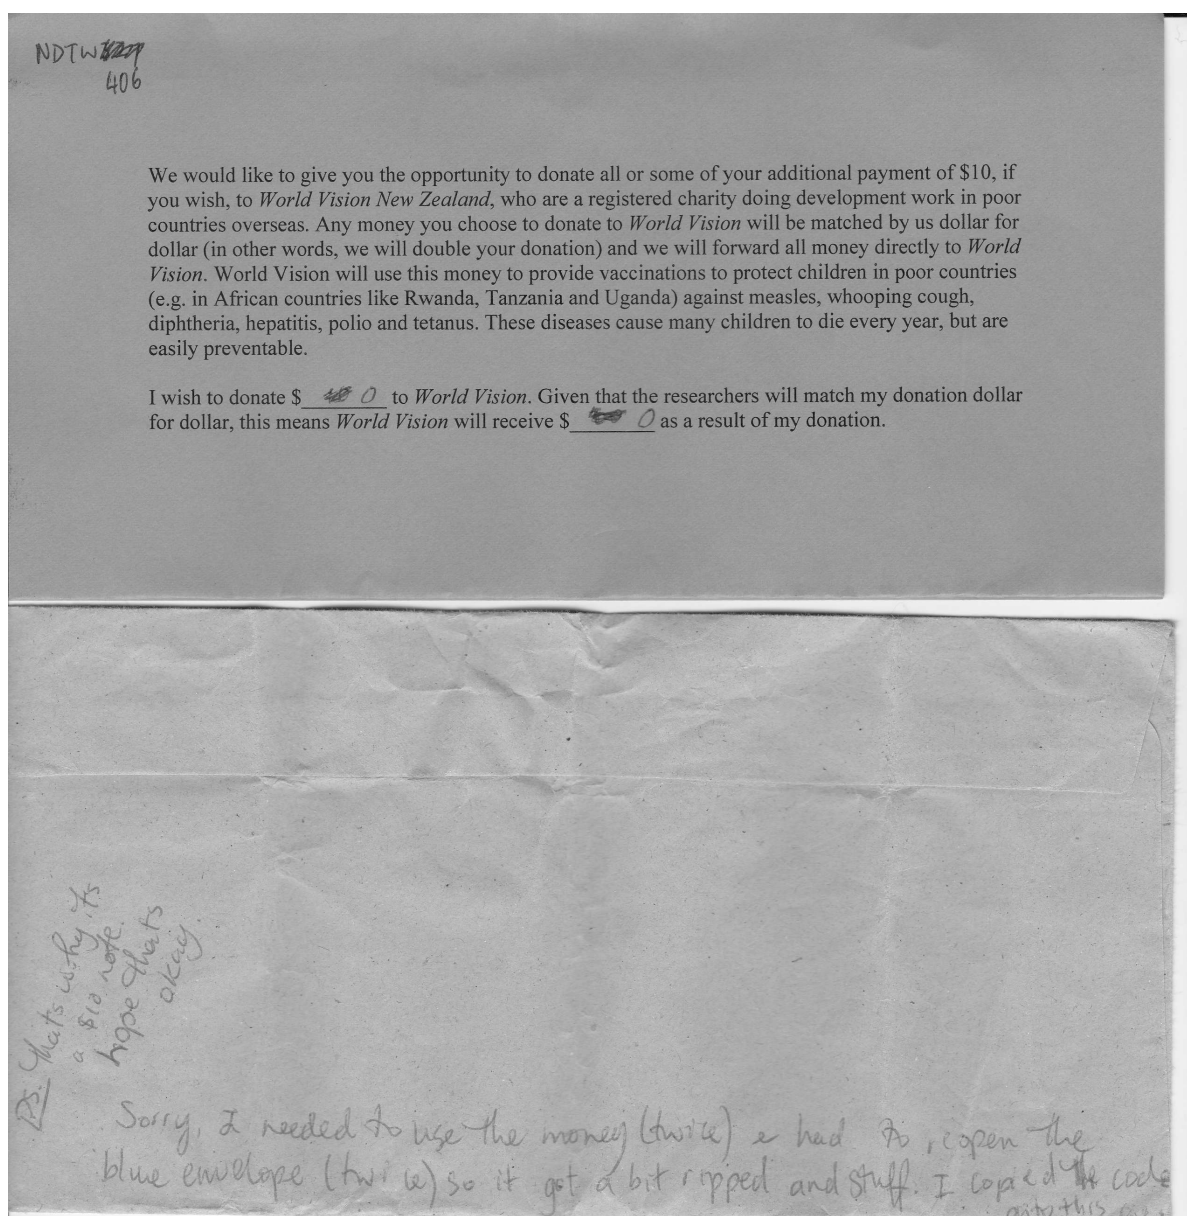 NDTW
406
We would like to give you the opportunity to donate all or some of your additional payment of $10, if
you wish, to World Vision New Zealand, who are a registered charity doing development work in poor
countries overseas. Any money you choose to donate to World Vision will be matched by us dollar for
dollar (in other words, we will double your donation) and we will forward all money directly to World
Vision. World Vision will use this money to provide vaccinations to protect children in poor countries
(e.g. in African countries like Rwanda, Tanzania and Uganda) against measles, whooping cough,
diphtheria, hepatitis, polio and tetanus. These diseases cause many children to die every year, but are
easily preventable.
I wish to donate $ 0 to World Vision. Given that the researchers will match my donation dollar
for dollar, this means World Vision will receive $ 0 as a result of my donation.
PS. Thats why its
a $10 note.
hope thats
okay.
Sorry, I needed to use the money (twice) & had to open the
blue envelope (twice) so it got a bit ripped and stuff. I copied the code
onto this